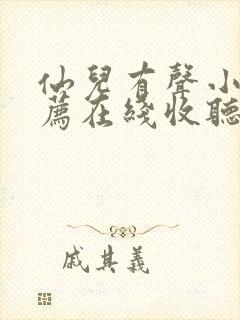 仙兒有聲小
薦在綫收聽
戚其義